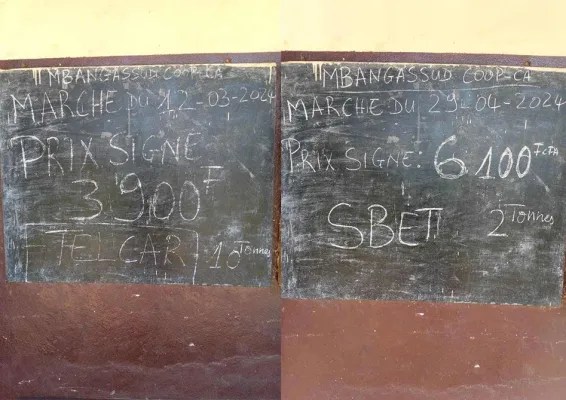 MBANGASSUD COOP-CA
MARCHE DU 12-03-2024
PRIX SIGNE
3900F
TELCAR 10 Tonnes
MBANGASSUD COOP-CA
MARCHE DU 29-04-2024
PRIX SIGNE: 6.100 FCFA
SBET 2 Tonnes